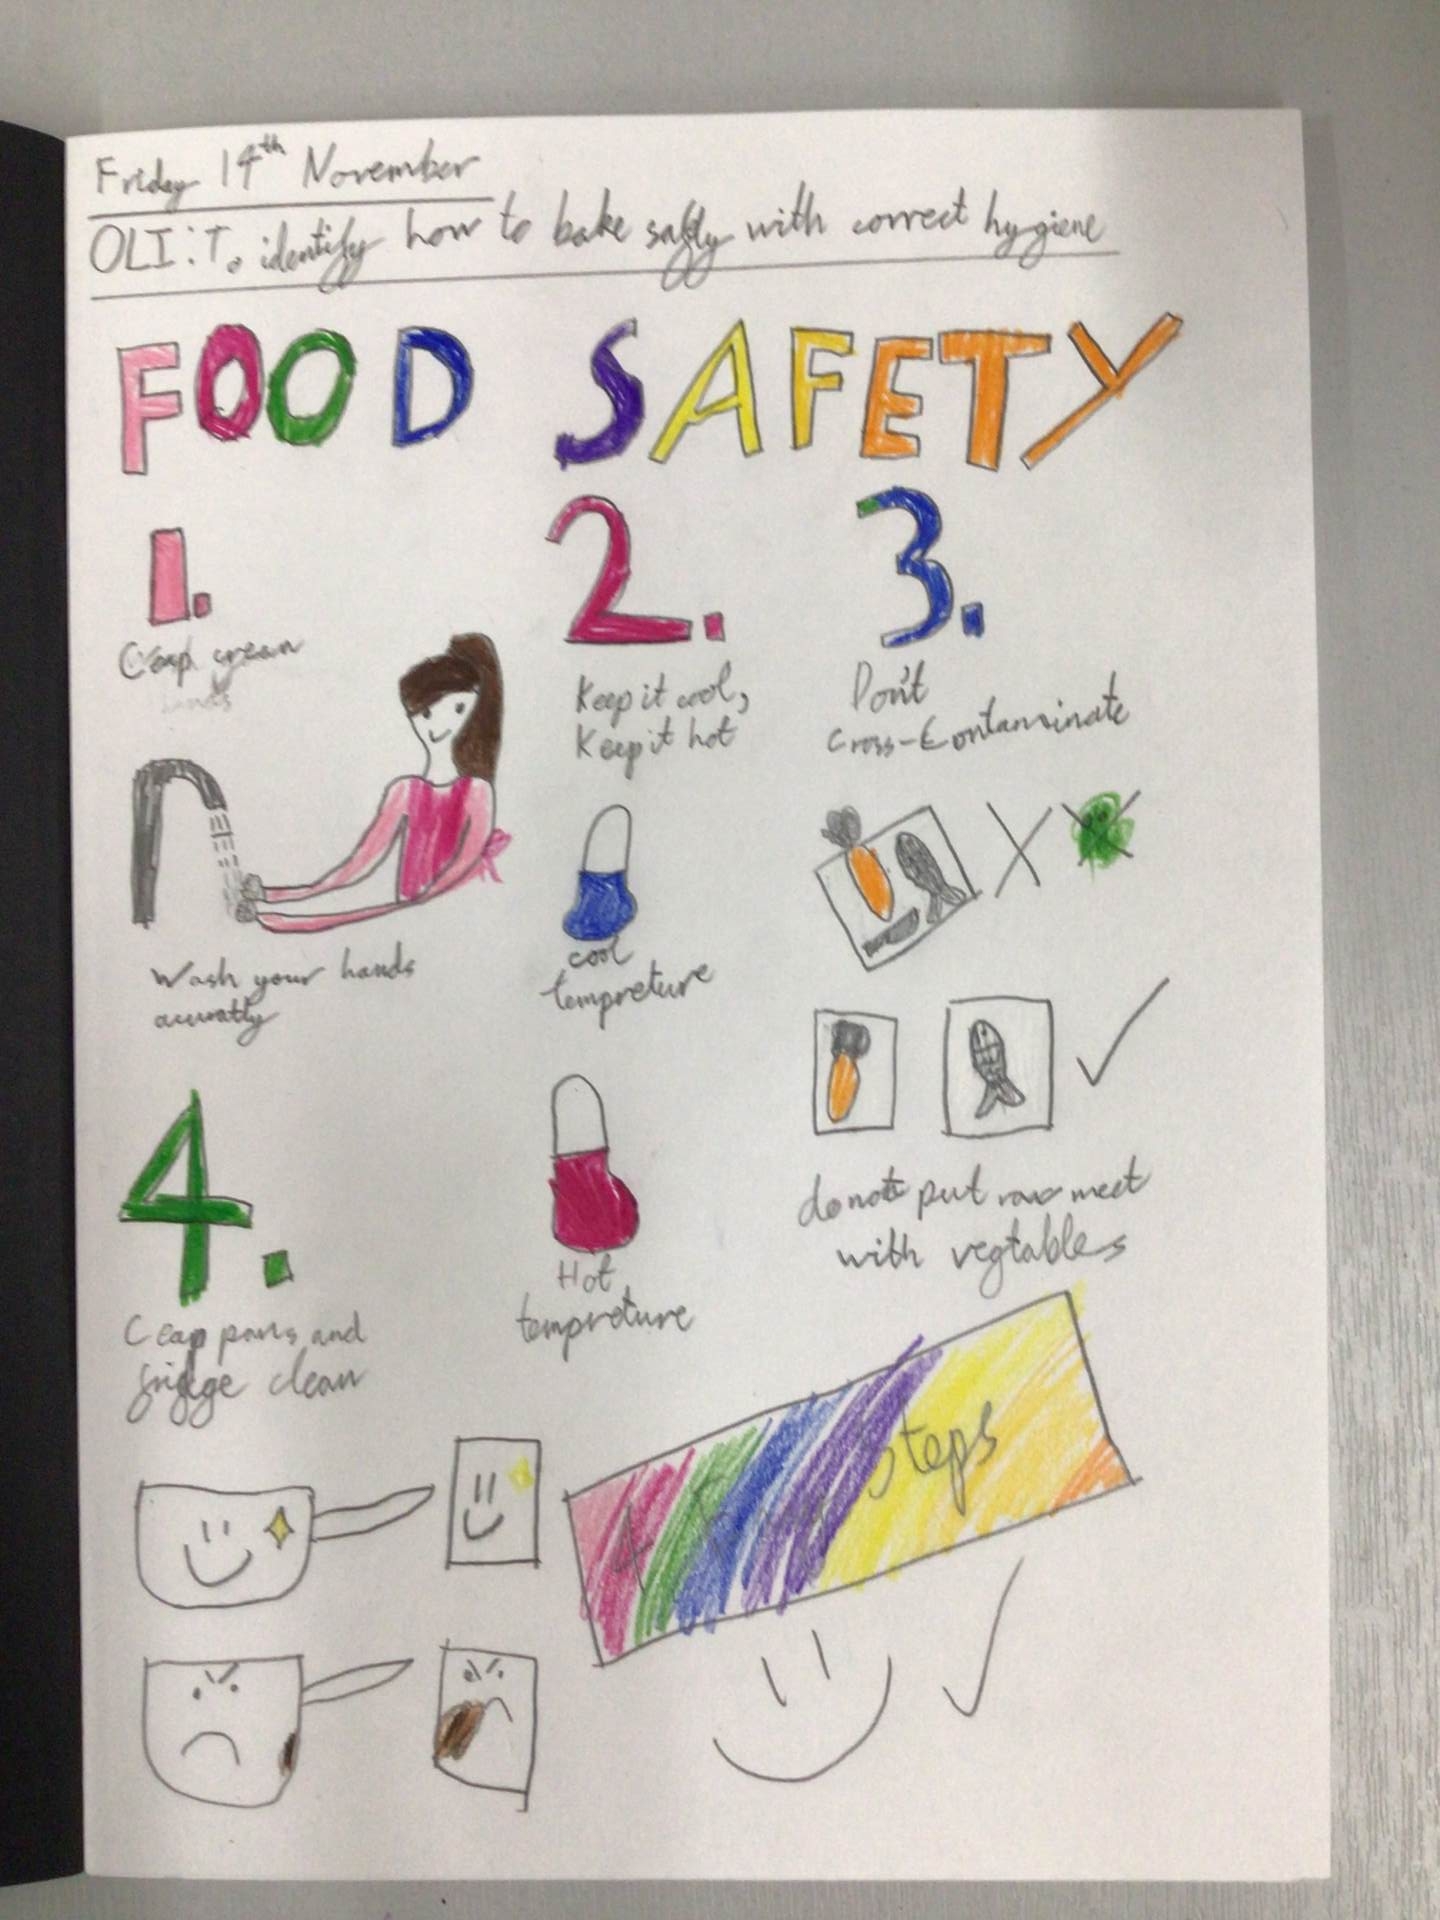 Friday 14th November
OLI: To identify how to bake safly with correct hygiene
FOOD SAFETY
1.
hands
Wash your hands
2.
Keep it cool,
Keep it hot
cool
tempreture
Hot
tempreture
3.
Don't
Cross-Contaminate
X
do note put raw meet
with vegtables
4.
Ceap pans and
fridge clean
4 steps